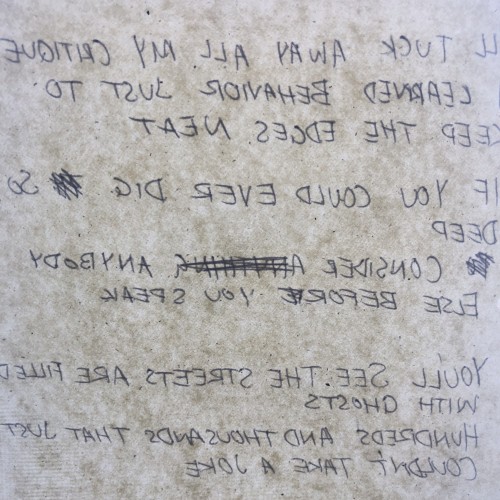 LL TUCK AWAY ALL MY CRITIQUE
LEARNED BEHAVIOR JUST TO
KEEP THE EDGES NEAT
IF YOU COULD EVER DIG SO
DEEP
CONSIDER ANYBODY
ELSE BEFORE YOU SPEAK
YOU'LL SEE THE STREETS ARE FILLED
WITH GHOSTS
HUNDREDS AND THOUSANDS THAT JUST
COULDN'T TAKE A JOKE